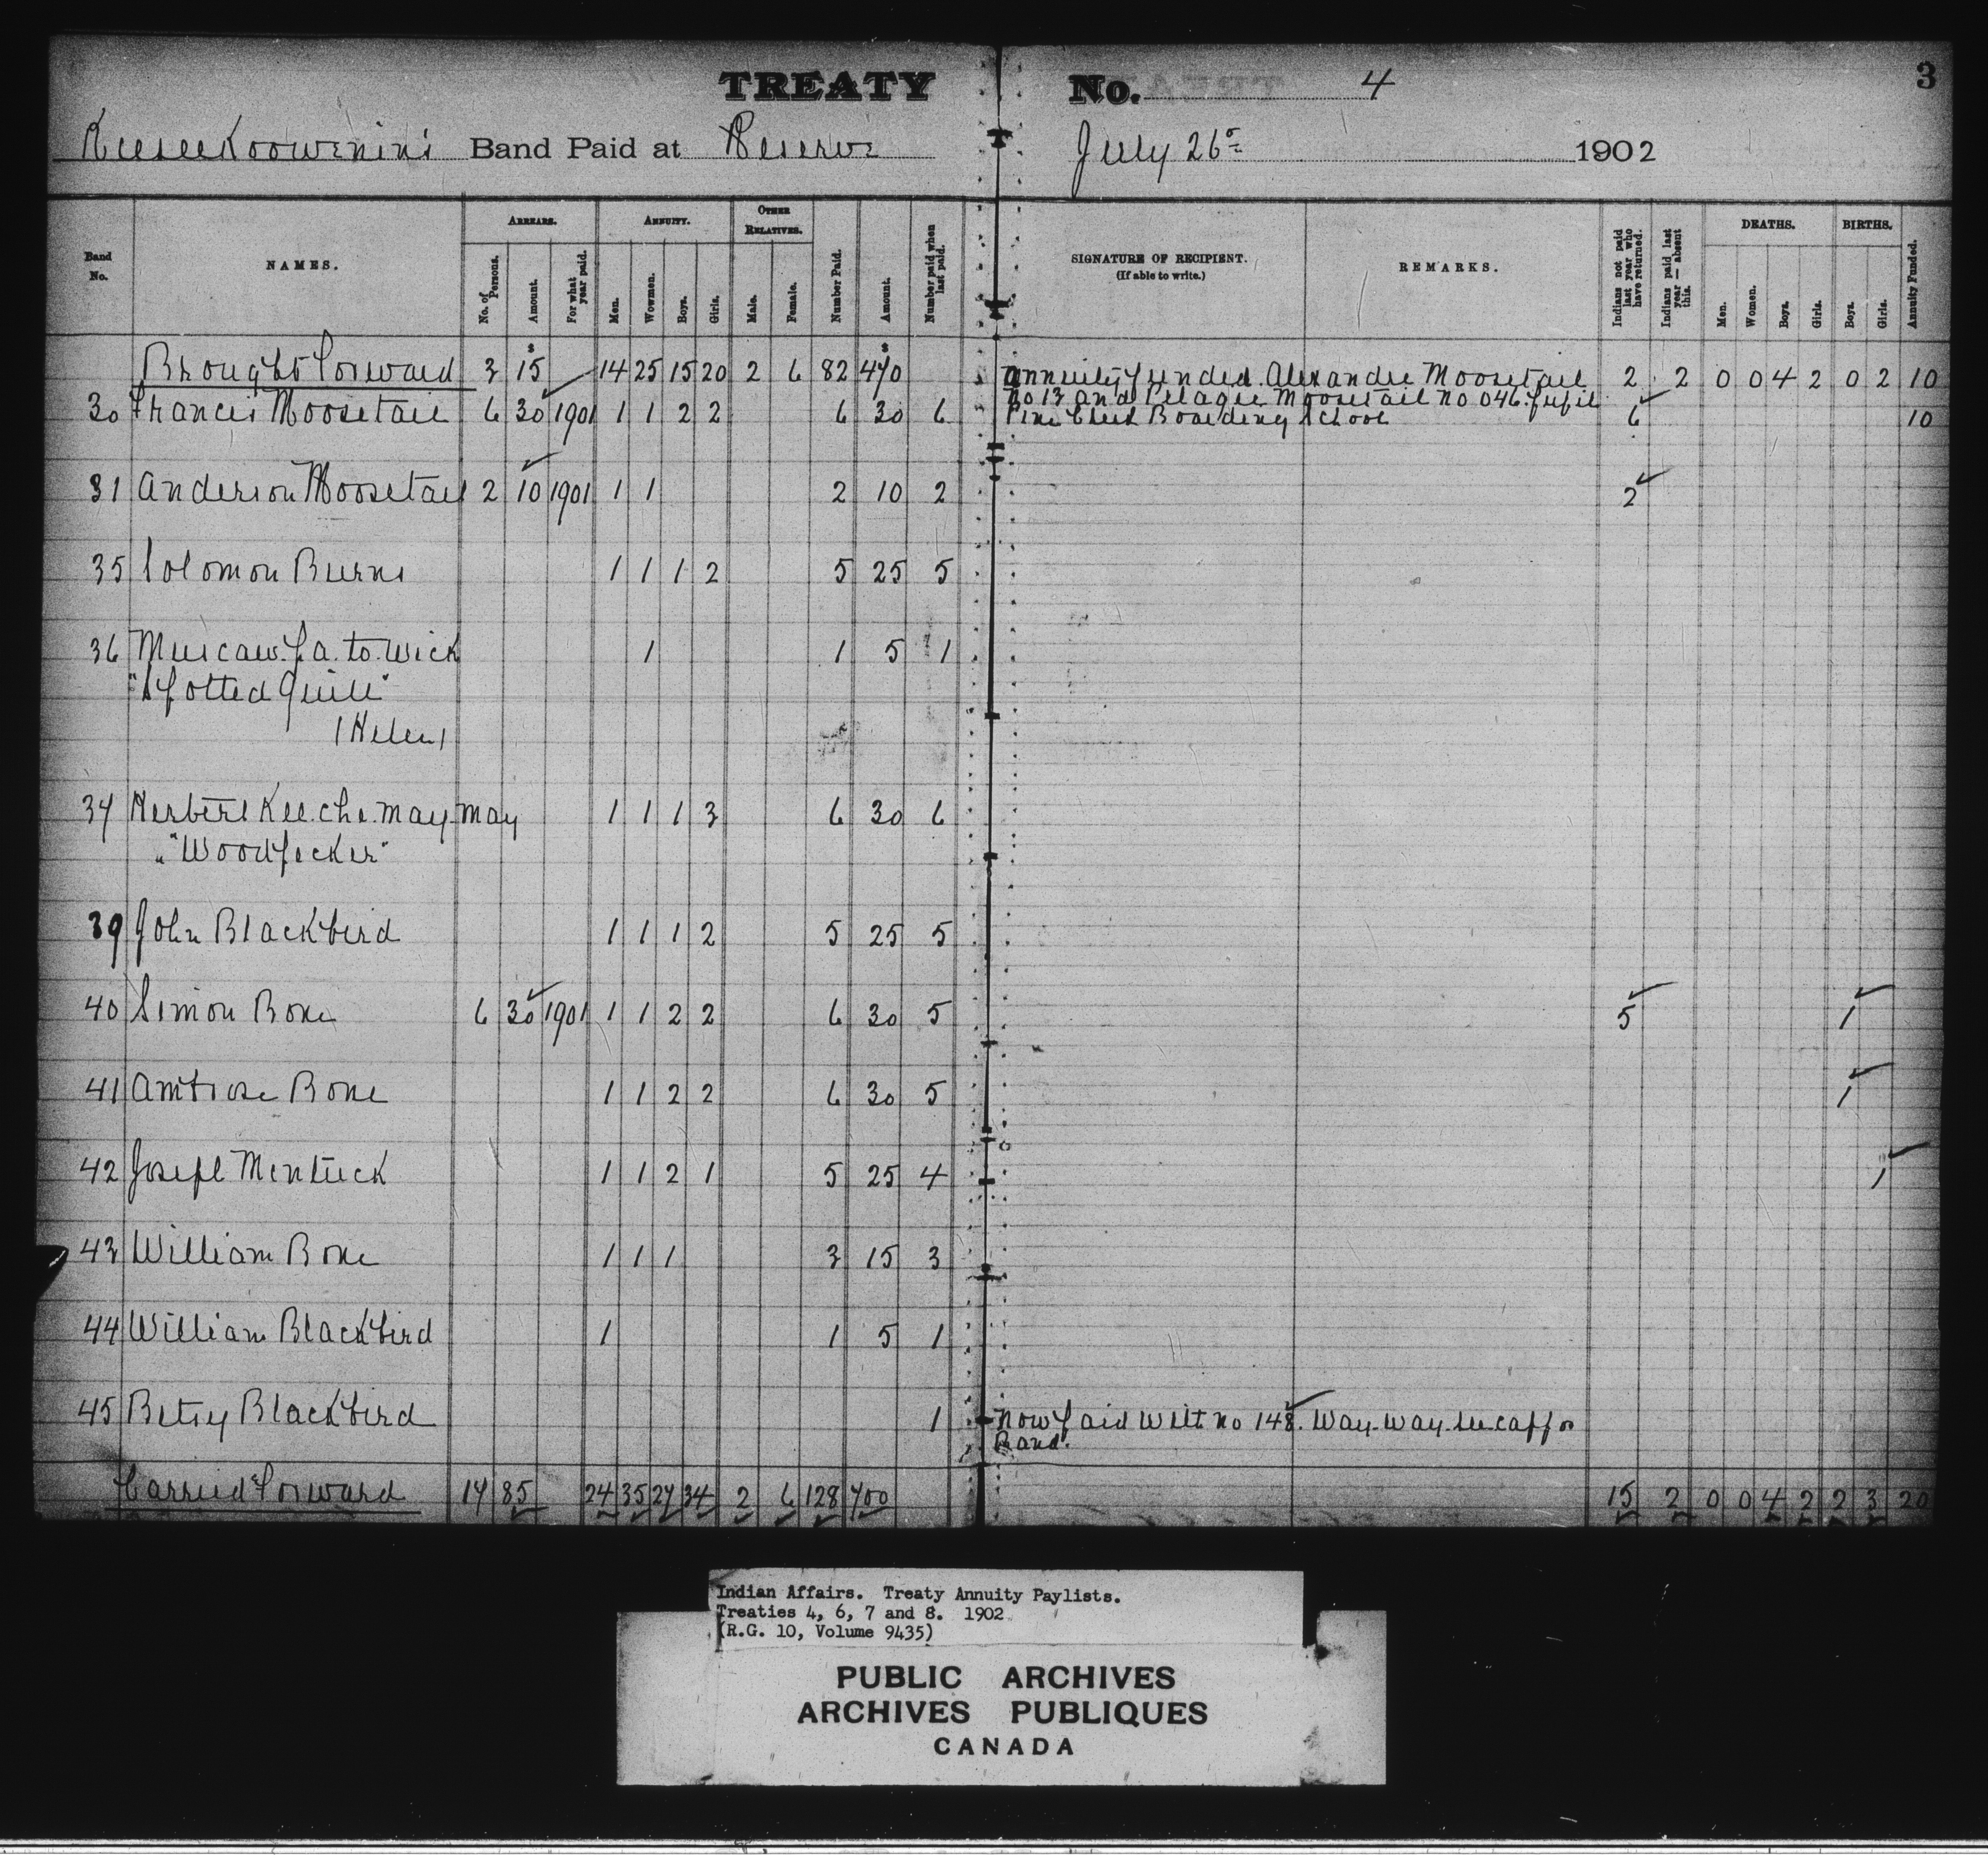 TREATY No. 4 3
Keeseekoowenins Band Paid at Reserve July 26th 1902
Band No. NAMES. ARREARS. No. of Persons. Amount. For what year paid. ANNUITY. Men. Wowmen. Boys. Girls. OTHER RELATIVES. Male. Female. Number Paid. Amount. Number paid when last paid. SIGNATURE OF RECIPIENT. (If able to write.) REMARKS. Indians not paid last year who have returned. Indians paid last year — absent this. DEATHS. Men. Women. Boys. Girls. BIRTHS. Boys. Girls. Annuity Funded.
Brought Forward 3 $15 14 25 15 20 2 6 82 $470 Annuity funded. Alexandre Moosetail 2 2 0 0 4 2 0 2 10
No 13 and Pelagie Moosetail No 046. pupil
30 Francis Moosetail 6 30 1901 1 1 2 2 6 30 6 Pine Creek Boarding School 6 10
31 Anderson Moosetail 2 10 1901 1 1 2 10 2 2
35 Solomon Burns 1 1 1 2 5 25 5
36 Muscaw.pa.to.wick 1 1 5 1
"Spotted Quill"
(Helen)
37 Herbert Kee.che.may.may 1 1 1 3 6 30 6
"Woodpecker"
39 John Blackbird 1 1 1 2 5 25 5
40 Simon Bone 6 30 1901 1 1 2 2 6 30 5 5 1
41 Ambrose Bone 1 1 2 2 6 30 5 1
42 Joseph Mentuck 1 1 2 1 5 25 4 1
43 William Bone 1 1 1 3 15 3
44 William Blackbird 1 1 5 1
45 Betsy Blackbird 1 Now paid with no 148. Way.way.see.cappo
Band.
Carried Forward 17 85 24 35 27 34 2 6 128 700 15 2 0 0 4 2 2 3 20
Indian Affairs. Treaty Annuity Paylists.
Treaties 4, 6, 7 and 8. 1902
(R.G. 10, Volume 9435)
PUBLIC ARCHIVES
ARCHIVES PUBLIQUES
CANADA